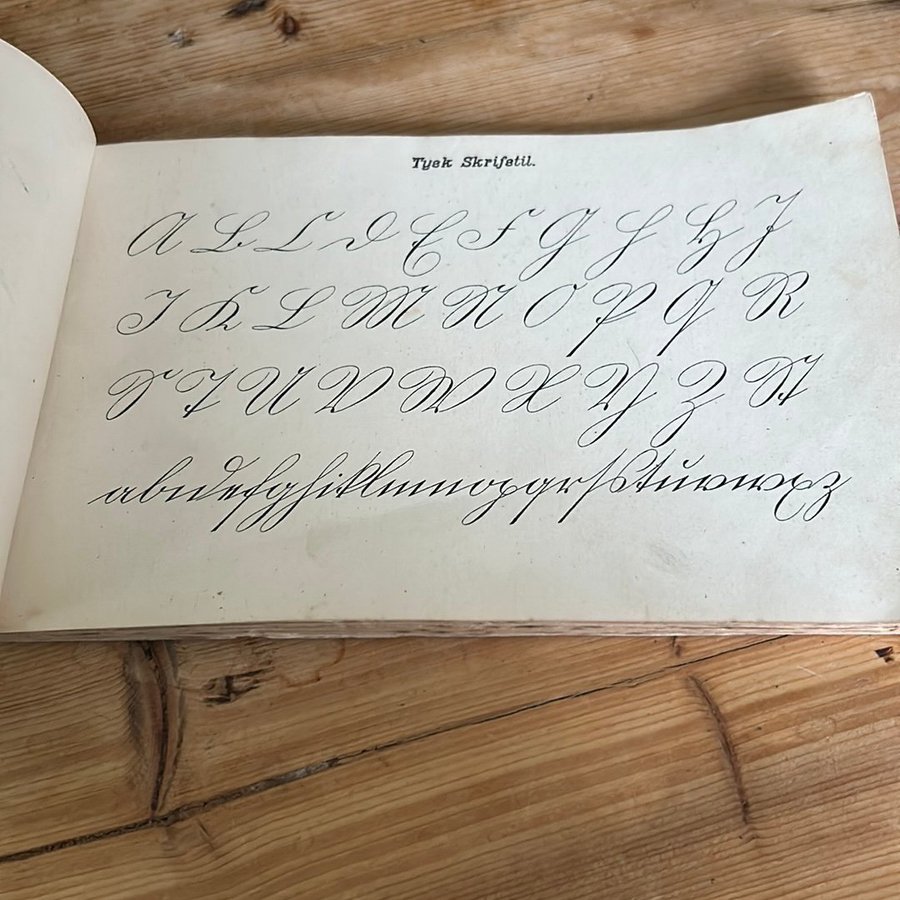 Tysk Skrifstil.
A B C D E F G H H J
I K L M N O P Q R
S T U V W X Y Z St
abcdefghiklmnopqrſstuvwxz